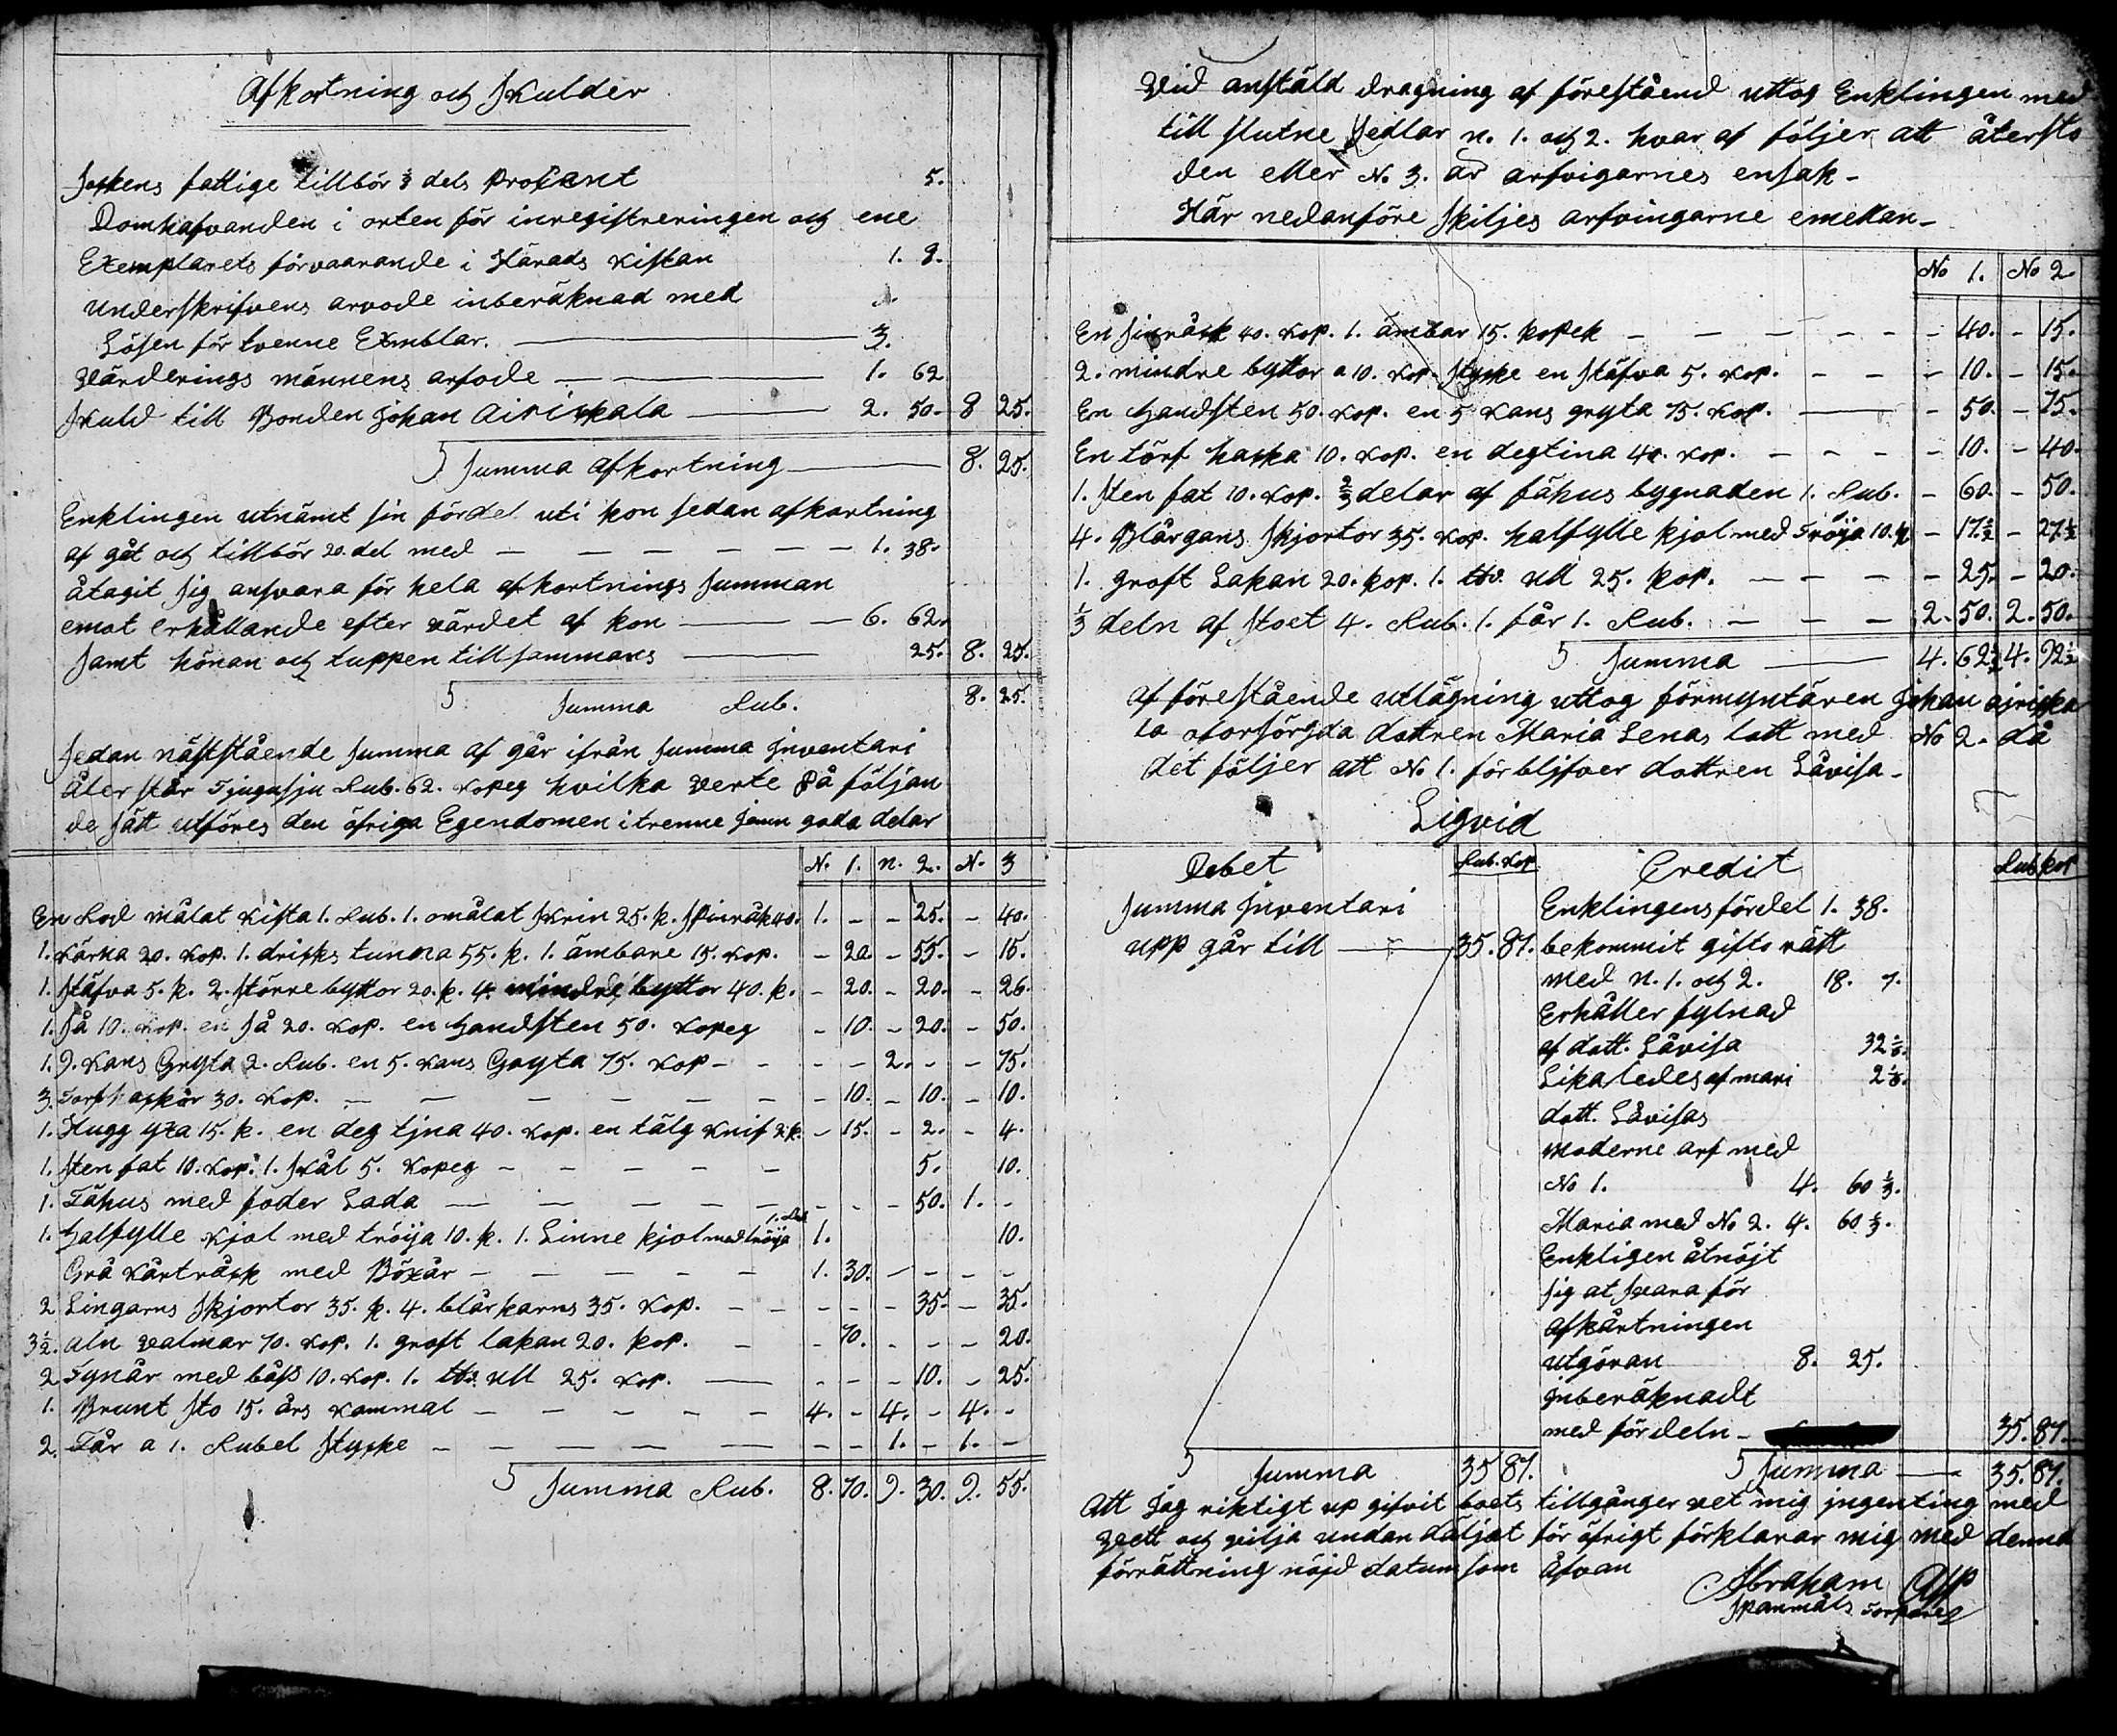 Afkortning och Skulder
Sokens fattige tillbör ⅛ dels Procent 5.
Domhafvanden i orten för inregistreringen och ene
Exemplarets förvaarande i Härads kistan 1. 8.
underskrifvens arvode inberäknad med
Lösen för tvenne Exmblar. — 3.
Värderings männens arfode — 1. 62
Skuld till Bonden Johan Airiskala — 2. 50. 8 25.
Summa afkortning — 8. 25.
Enklingen utnämt sin fördel uti kon sedan afkortning
af gåt och tillbör 20. del med — — — — — — 1. 38.
åtagit sig ansvara för hela afkortnings Summan
emot erhållande efter värdet af kon — — 6. 62.
Samt hönan och tuppen till sammans — 25. 8. 25.
Summa Rub. 8. 25.
Sedan näststående Summa af går ifrån Summa Inventari
åter står Tjugusju Rub. 62. kopeg hvilka verte På följan
de sätt utföres den öfriga Egendomen i trenne jämn goda delar
N. 1. n. 2. N. 3
En Röd målat kista 1. Rub. 1. omålat Skrin 25. k. Spinråk 40. 1. - - 25. - 40.
1. kärna 20. kop. 1. driks tunna 55. k. 1. ämbare 15. kop. - 20. - 55. - 15.
1. Stäfva 5. k. 2. större byttor 20. k. 4. mindre byttor 40. k. - 20. - 20. - 26.
1. Så 10. kop. en Så 20. kop. en Handsten 50. kopeg - 10. - 20. - 50.
1. 9. kans Gryta 2. Rub. en 5. kans Gryta 75. kop - - - - 2. - - 75.
3. Torf haskor 30. kop. — — — — — - 10. - 10. - 10.
1. Hugg yxa 15. k. en deg tjna 40. kop. en tälg knif 2. k. - 15. - 2. - 4.
1. sten fat 10. kop. 1. skål 5. kopeg — — — — — 5. 10.
1. Fähus med foder Lada — — — — — - - - 50. 1. -
1. Halfylle kjol med tröija 10. k. 1. Linne kjol med tröija 1. Rub 1. 10.
Grå kårtråsk med Böxår — — — — — 1. 30. - - - -
2 Lingarns skjortor 35. k. 4. blårkarns 35. kop. — — - - - 35. - 35.
3½. aln valmar 70. kop. 1. groft lakan 20. kop. — - 70. - - - 20.
2 Tynår med båss 10. kop. 1. ttv. ull 25. kop. — - - - 10. - 25.
1. Brunt sto 15. års kammal — — — — — 4. - 4. - 4. -
2. Får a 1. Rubel stycke — — — — — - - 1. - 1. -
Summa Rub. 8. 70. 9. 30. 9. 55.
Vid anstäld dragning af förestående uttog Enklingen med
till slutne Sedlar n. 1. och 2. hvar af följer att återstå
den eller No 3. är arfvigarnes ensak -
Här nedanföre skiljes arfvingarne emellan -
No 1. No 2.
En sinråsk 40. kop. 1. ämbar 15. kopek — — — — — - 40. - 15.
2. mindre byttor a 10. kop. stycke en stäfva 5. kop. — — - 10. - 15.
En Handsten 50. kop. en 5 kans gryta 75. kop. — - 50. - 75.
En törf haska 10. kop. en degtina 40. kop. — — — — - 10. - 40.
1. sten fat 10. kop. ⅔ delar af fähus bygnaden 1. Rub. - 60. - 50.
4. Blårgans skjortor 35. kop. halfylle kjol med Tröija 10. k - 17½ - 27½
1. groft Lakan 20. kop. 1. ttv. ull 25. kop. — — — - 25. - 20.
⅓ deln af stoet 4. Rub. 1. får 1. Rub. — — — 2. 50. 2. 50.
Summa — 4. 62½ 4. 92½
af förestående utlägning uttog förmyntären Johan ajriska
la oforsörgda dottren Maria Lenas lott med No 2. då
det följer att No 1. förblifver dottren Låvisa -
Liqvid
Debet Rub. kop Credit Rub kop
Summa Inventari Enklingens fördel 1. 38.
upp går till — 35. 87. bekommit gifto rätt
med n. 1. och 2. 18. 7.
Erhåller fylnad
af dott. Låvisa 32⅙.
Lika ledes af mari 2⅙.
dott. Låvisas
moderne arf med
No 1. 4. 60⅓.
Maria med No 2. 4. 60⅓.
Enkligen åtnöjt
sig at svara för
afkårtningen
utgöran 8. 25.
Inberäknadt
med fördeln - 35. 87.
Summa 35 87. Summa — 35. 87.
Att Jag riktigt up gifvit boets tillgånger vet mig ingenting med
vett och vilja undan döljat för öfrigt förklarar mig med denna
förrättning nöjd datum som åfvan
Abraham
Spanmåls Torpare